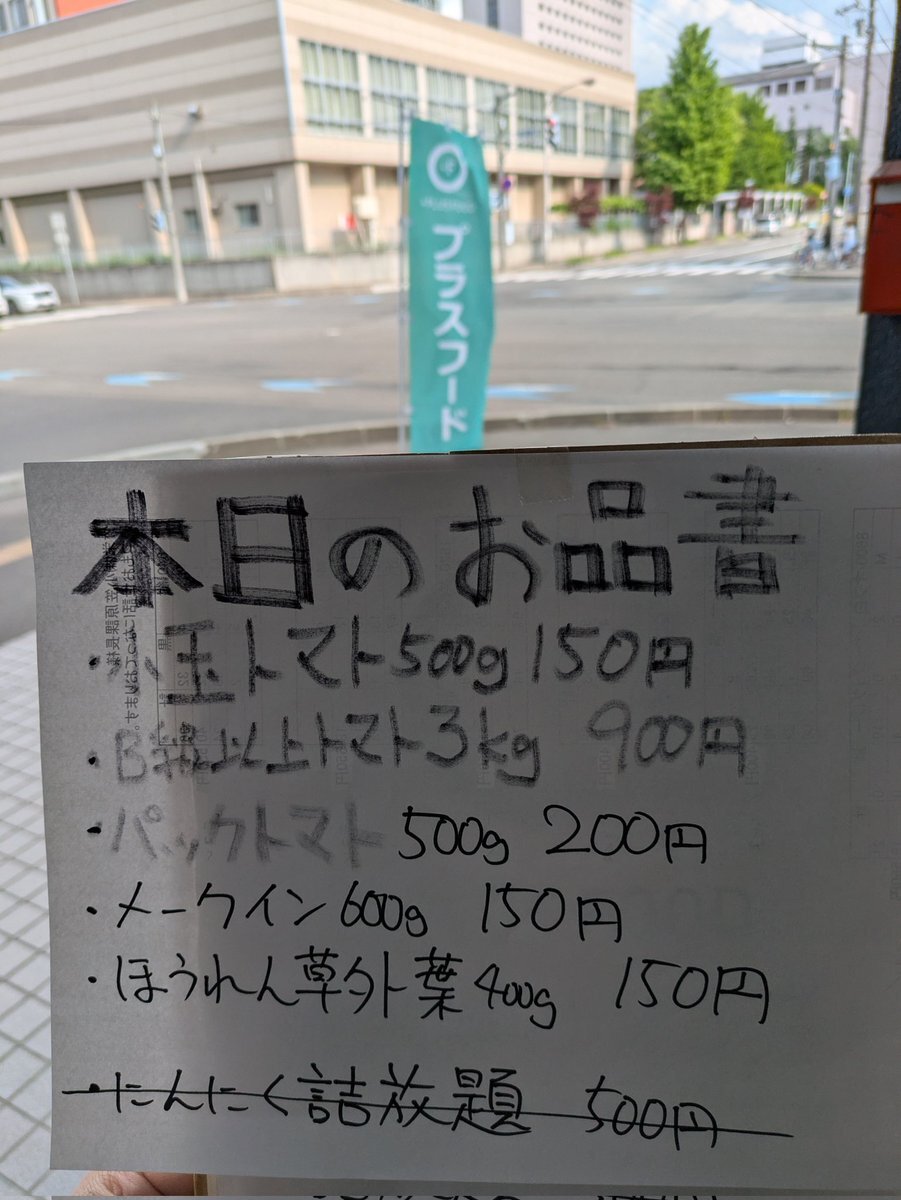 プラスフード
本日のお品書
・小玉トマト500g 150円
・B級以上トマト3kg 900円
・パックトマト 500g 200円
・メークイン600g 150円
・ほうれん草外葉400g 150円
・にんにく詰放題 500円